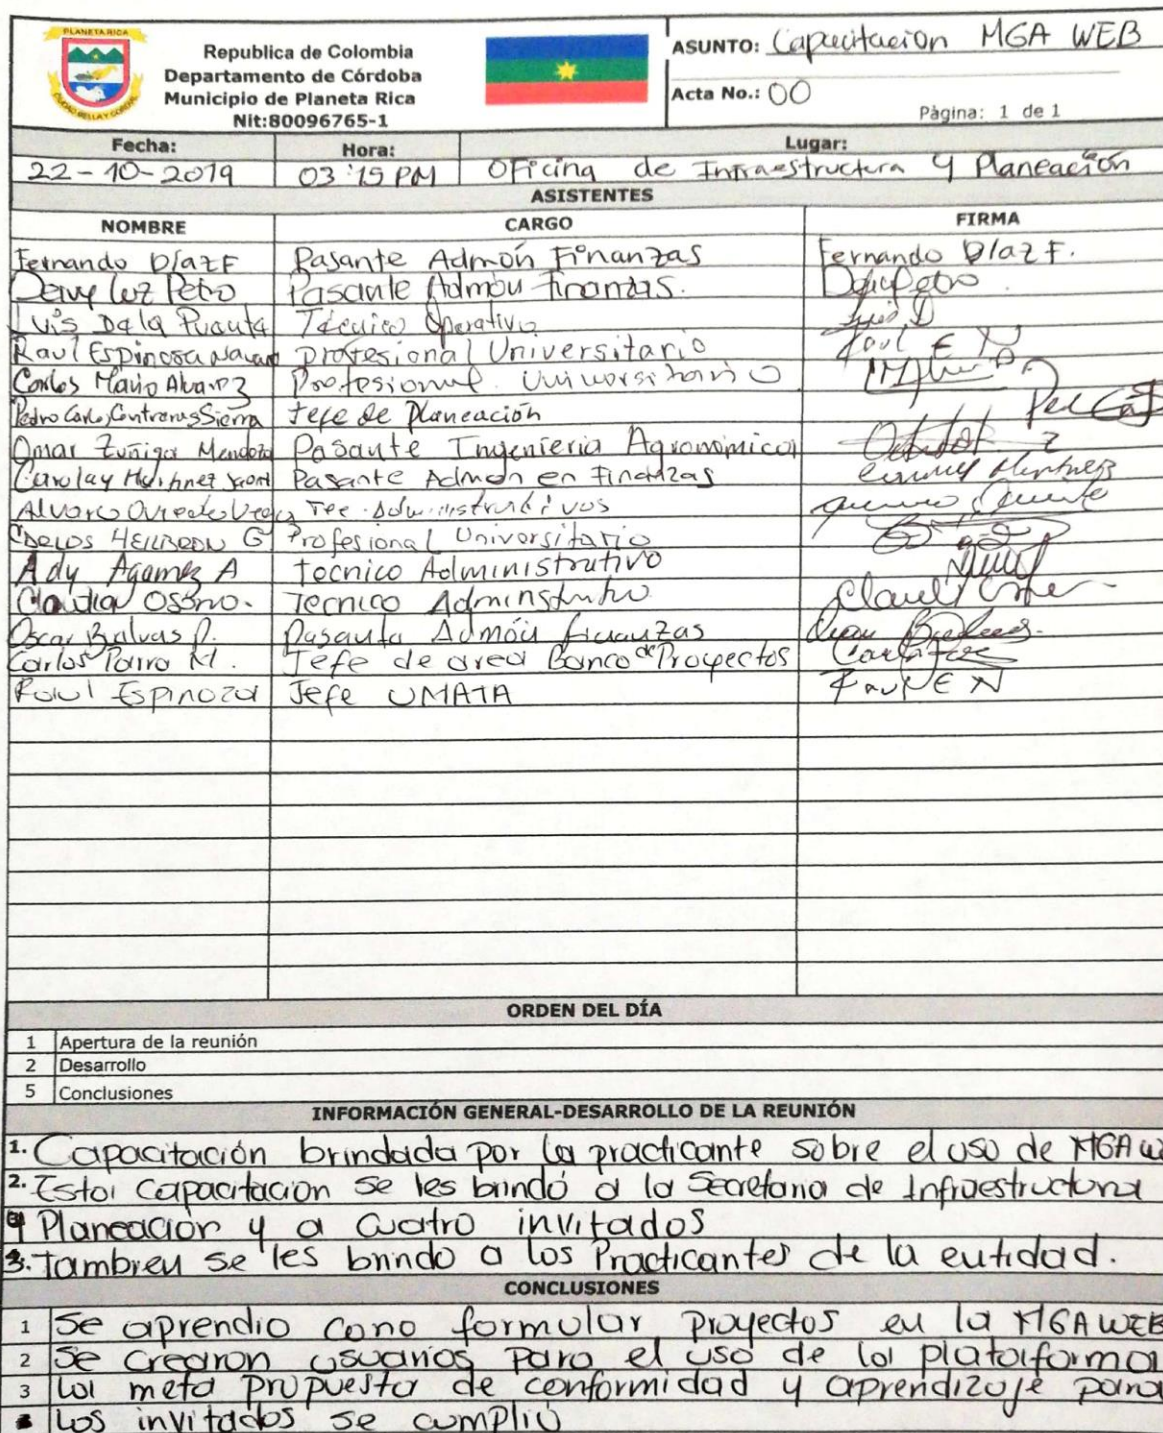 PLANETA RICA
Republica de Colombia
Departamento de Córdoba
Municipio de Planeta Rica
Nit:80096765-1
ASUNTO: Capacitacion MGA WEB
Acta No.: 00
Pàgina: 1 de 1
Fecha: Hora: Lugar:
22-10-2019 03:15 PM Oficina de Infraestructura y Planeación
ASISTENTES
NOMBRE CARGO FIRMA
Fernando Díaz F Pasante Admón Finanzas Fernando Díaz F.
Deivy Luz Petro Pasante Admón finanzas.
Luis De la Puente Técnico Operativo Luis D
Raul Espinosa Profesional Universitario Raul E N
Carlos Mario Alvarez Profesional Universitario
Pedro Carlos Contreras Sierra Jefe de Planeación
Omar Zuñiga Mendoza Pasante Ingenieria Agronomica
Carolay Martinez Pasante Admón en Finanzas
Alvaro Oviedo Vega Tec. Administrativos
Carlos G Profesional Universitario
Ady Agamez A Tecnico Administrativo
Claudia Osorio. Tecnico Adminstrativo
Oscar R. Pasante Admón finanzas
Carlos Parra M. Jefe de area Banco de Proyectos
Raul Espinoza Jefe UMATA Raul E N
ORDEN DEL DÍA
1 Apertura de la reunión
2 Desarrollo
5 Conclusiones
INFORMACIÓN GENERAL-DESARROLLO DE LA REUNIÓN
1. Capacitación brindada por la practicante sobre el uso de MGA W
2. Esta Capacitacion se les brindó a la Secretaria de Infraestructura
y Planeación y a cuatro invitados
3. Tambien se les brindo a los Practicantes de la entidad.
CONCLUSIONES
1 Se aprendio como formular proyectos en la MGA WEB
2 Se crearon usuarios para el uso de la plataforma
3 La meta propuesta de conformidad y aprendizaje para
los invitados se cumplió